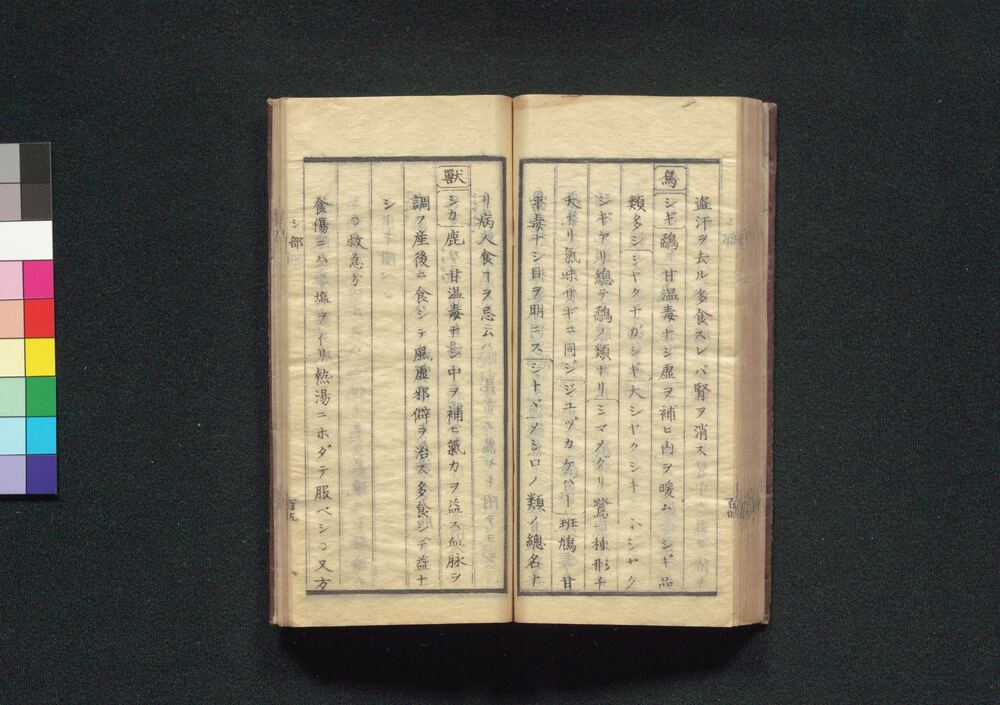 盗汗ヲ去ル多食スレバ腎ヲ消ス
鳥
シギ鷸 甘温毒ナシ虚ヲ補ヒ内ヲ暖ム シギ品
類多シシヤクナガシギ大シヤクシキ 小シヤク
シギアリ總テ鷸ノ類ナリミマメグリ鷺一種形チ
大ナリ氣味サギニ同ジジユヅカケバト 班鳩 甘
平毒ナシ目ヲ明ニスシトヾメシロノ類ノ總名ナ
リ病人食フヲ忌ム
獣
シカ鹿 甘温毒ナシ中ヲ補ヒ氣力ヲ益ス血脉ヲ
調フ産後ニ食シテ風虚邪僻ヲ治ス多食シテ益ナ
シ
○救急方
食傷ニハ 塩ヲイリ熱湯ニホダテ服ベシ○又方
シ部
百五